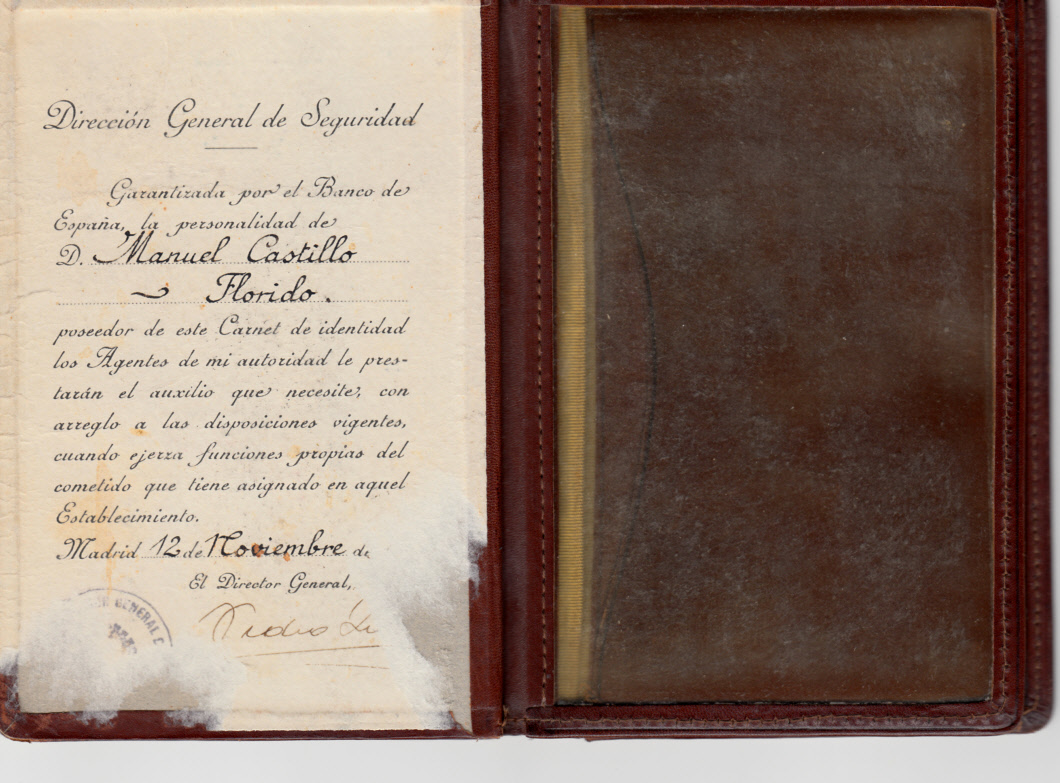 Dirección General de Seguridad
Garantizada por el Banco de
España, la personalidad de
D. Manuel Castillo
Florido.
poseedor de este Carnet de identidad
los Agentes de mi autoridad le pres-
tarán el auxilio que necesite, con
arreglo a las disposiciones vigentes,
cuando ejerza funciones propias del
cometido que tiene asignado en aquel
Establecimiento.
Madrid 12 de Noviembre de
El Director General,
GENERAL
Pedro